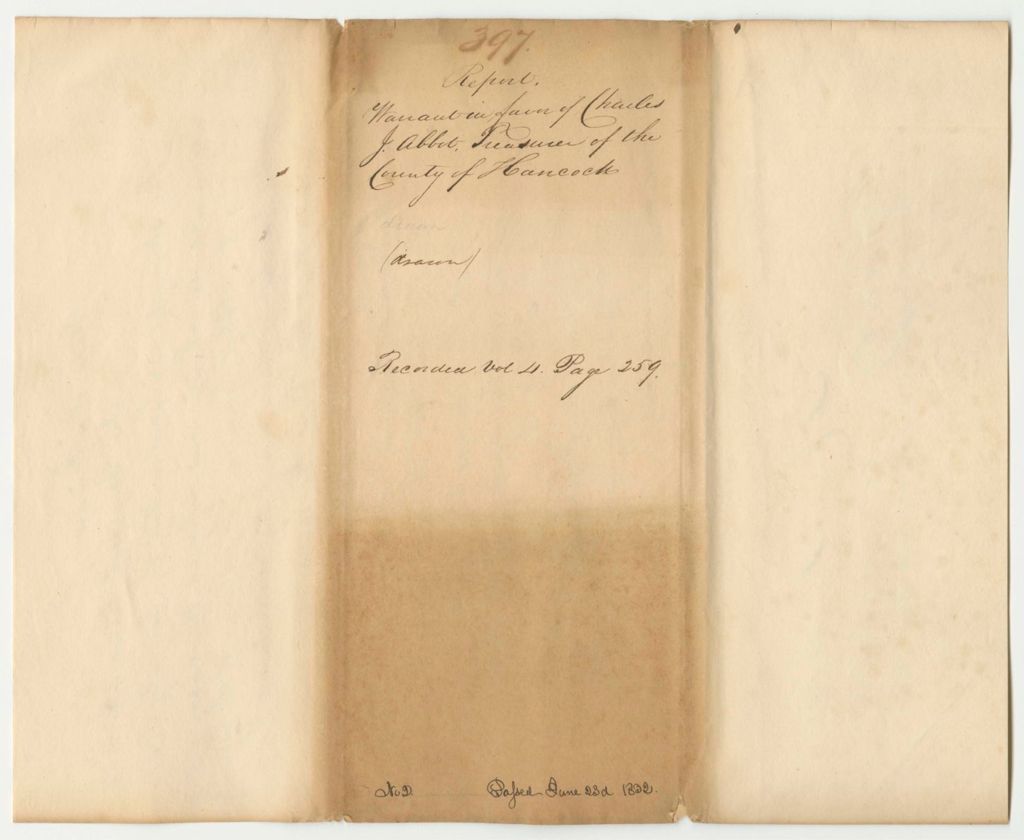 397.
Report.
Warrant in favor of Charles
J. Abbot, Treasurer of the
County of Hancock
drawn
(drawn)
Recorded Vol 4. Page 259.
No 2. Passed June 23d 1832.